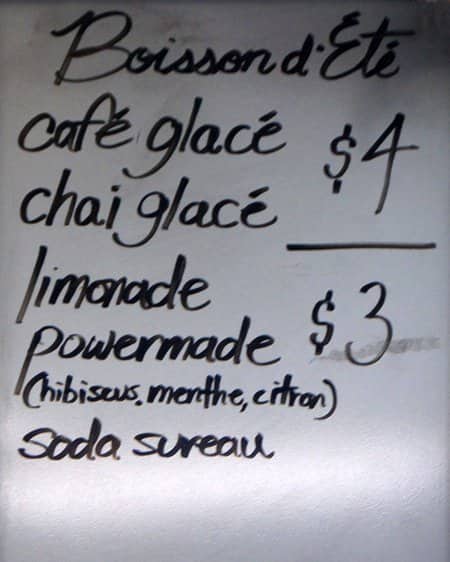 Boisson d'Été
café glacé $4
chai glacé
limonade
powermade $3
(hibiscus, menthe, citron)
soda sureau